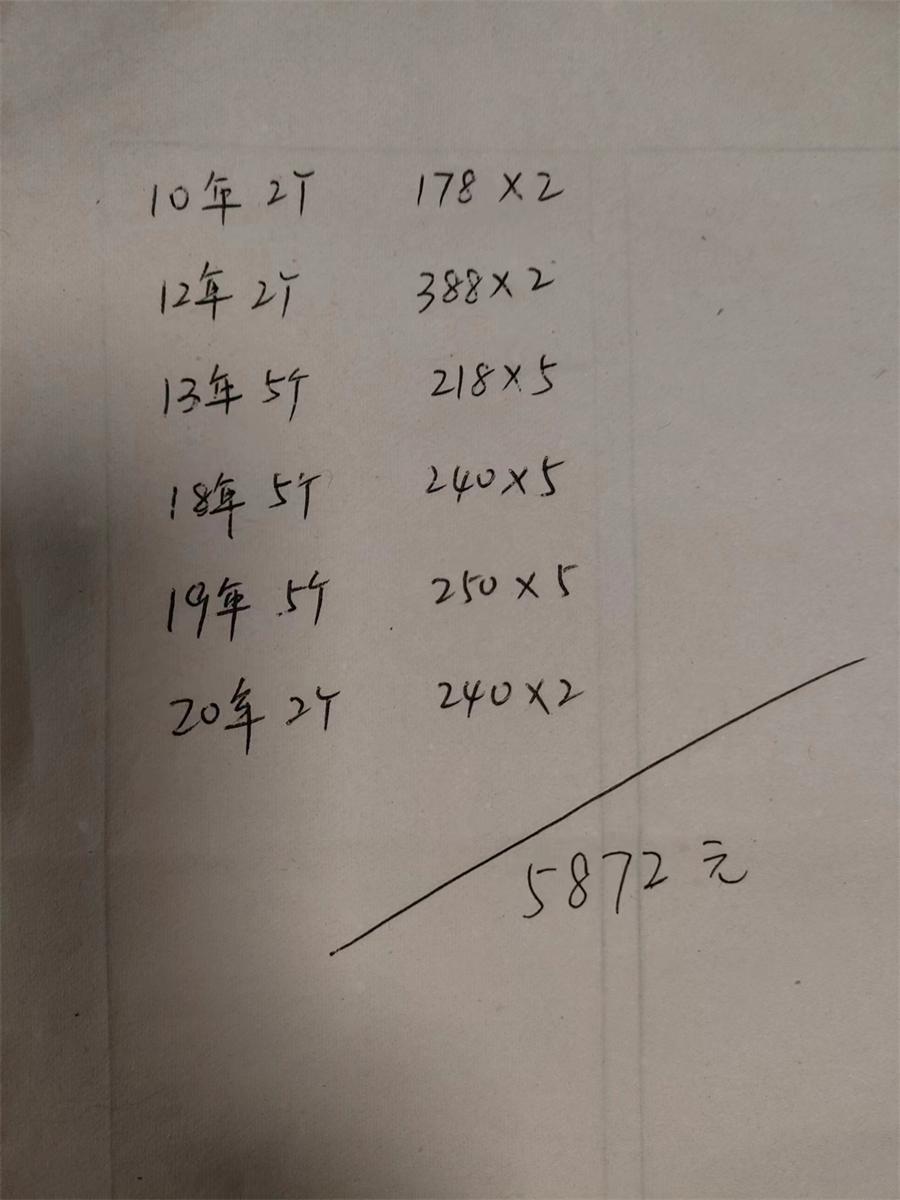 10年 2个 178×2
12年 2个 388×2
13年 5个 218×5
18年 5个 240×5
19年 5个 250×5
20年 2个 240×2
5872元